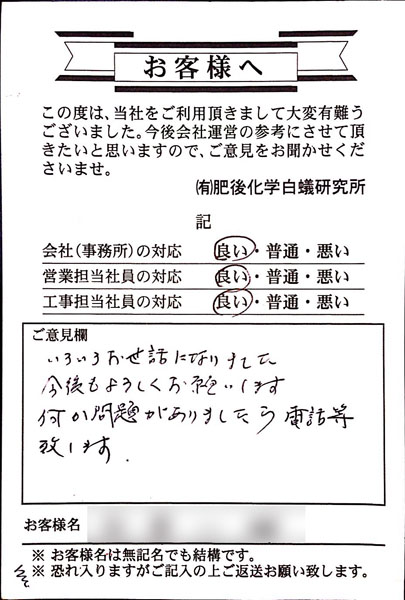 お客様へ
この度は、当社をご利用頂きまして大変有難う
ございました。今後会社運営の参考にさせて頂
きたいと思いますので、ご意見をお聞かせくだ
さいませ。
㈲肥後化学白蟻研究所
記
会社（事務所）の対応 良い・普通・悪い
営業担当社員の対応 良い・普通・悪い
工事担当社員の対応 良い・普通・悪い
ご意見欄
いろいろお世話になりました
今後もよろしくお願いします
何か問題がありましたら電話等
致します.
お客様名
※ お客様名は無記名でも結構です。
※ 恐れ入りますがご記入の上ご返送お願い致します。